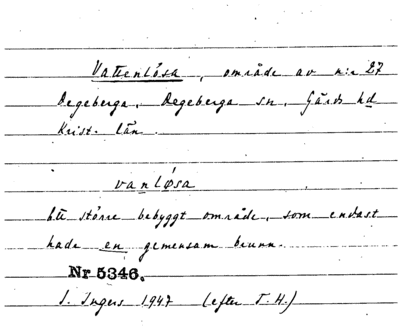 Vattenlösa, område av n:r 27
Degeberga, Degeberga sn, Gärds hd
Krist. län.
vanløsa
Ett större bebyggt område, som endast
hade en gemensam brunn.
Nr 5346.
I. Ingers 1947 (efter T. H.)